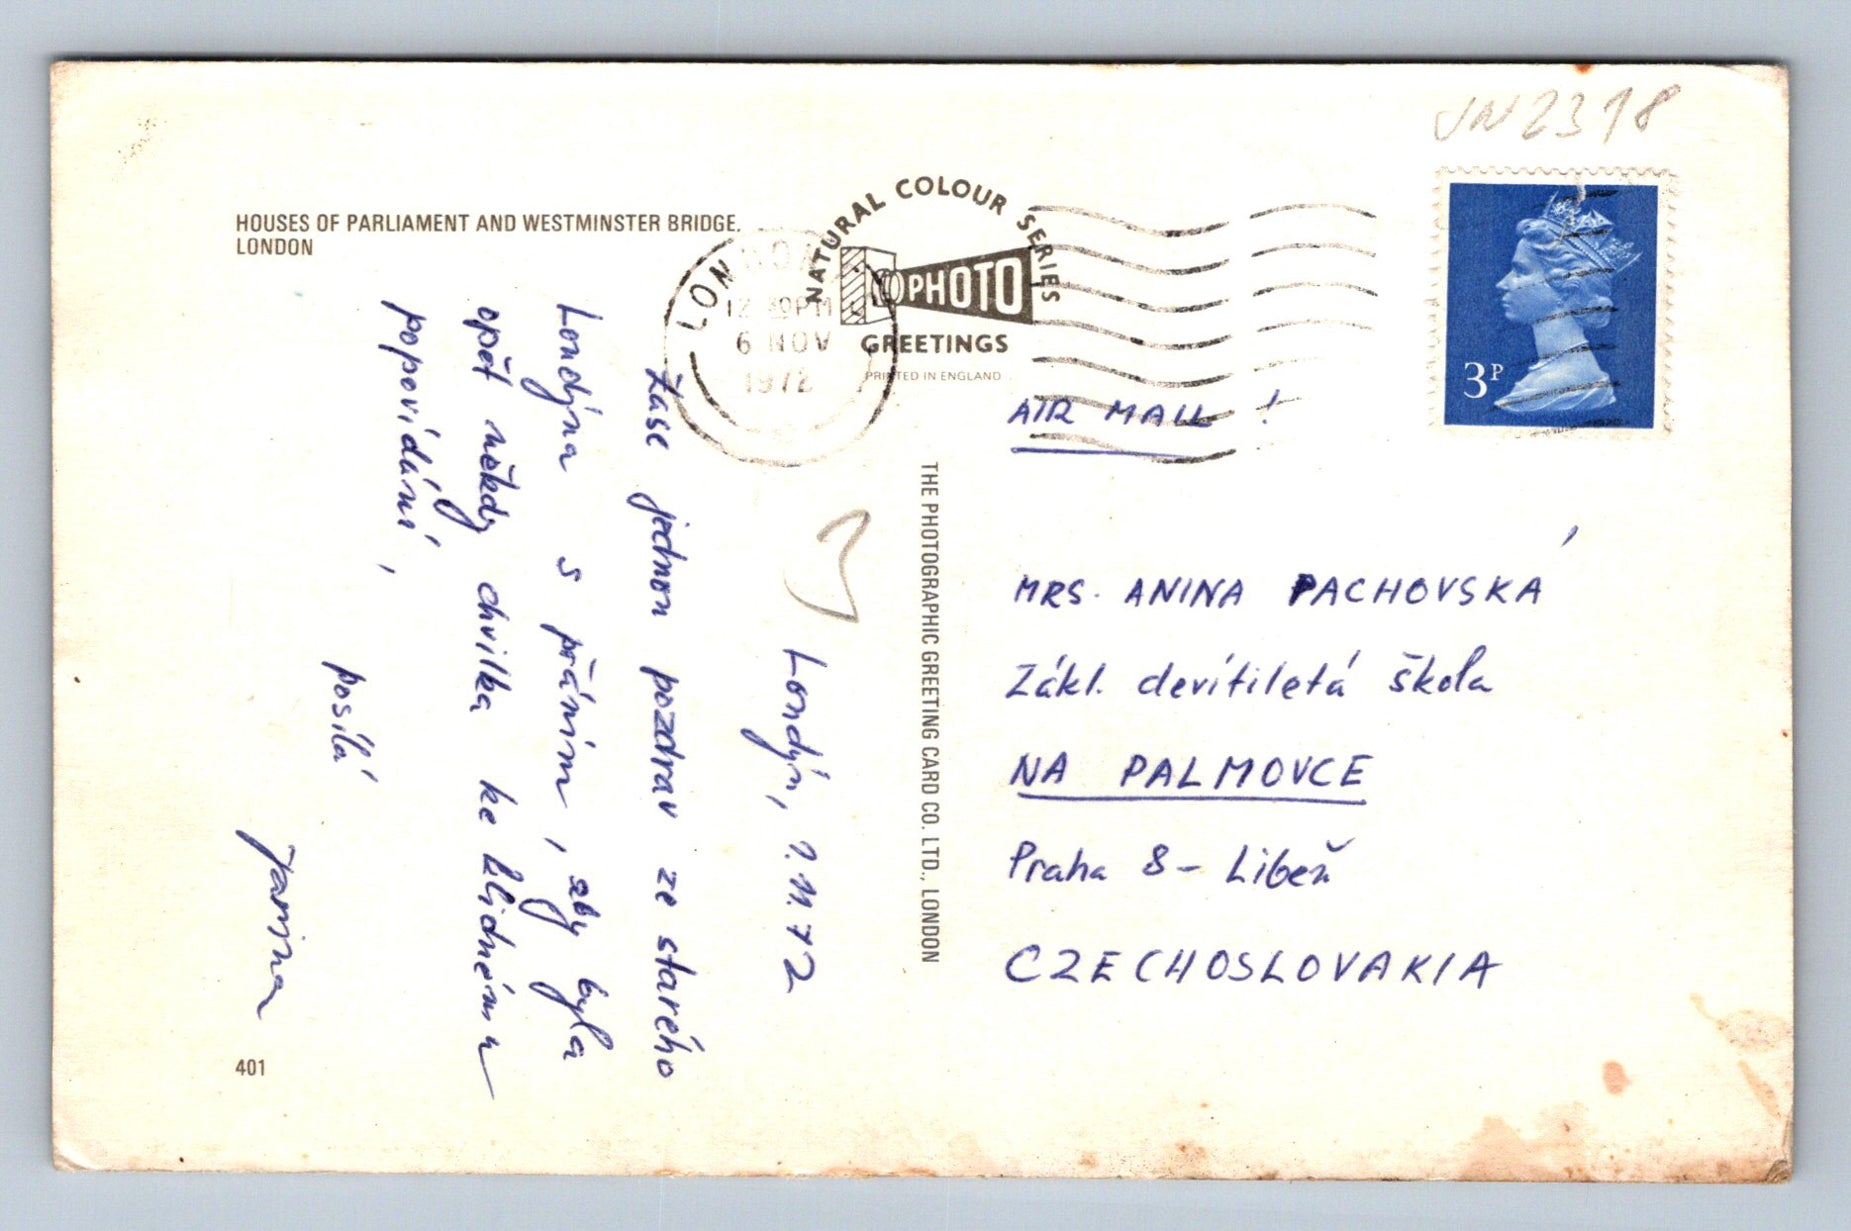 JN2318
HOUSES OF PARLIAMENT AND WESTMINSTER BRIDGE.
LONDON
NATURAL COLOUR SERIES
PHOTO
GREETINGS
PRINTED IN ENGLAND
LONDON
12 30PM
6 NOV
1972
3P
THE PHOTOGRAPHIC GREETING CARD CO. LTD., LONDON
Londýn, 1.11.72
Zase jednou pozdrav ze starého
Londýna s přáním, aby byla
opět někdy chvilka ke klidnému
popovídání,
posílá
Jarmina
401
AIR MAIL!
MRS. ANINA PACHOVSKÁ
Zákl. devítiletá škola
NA PALMOVCE
Praha 8 - Libeň
CZECHOSLOVAKIA